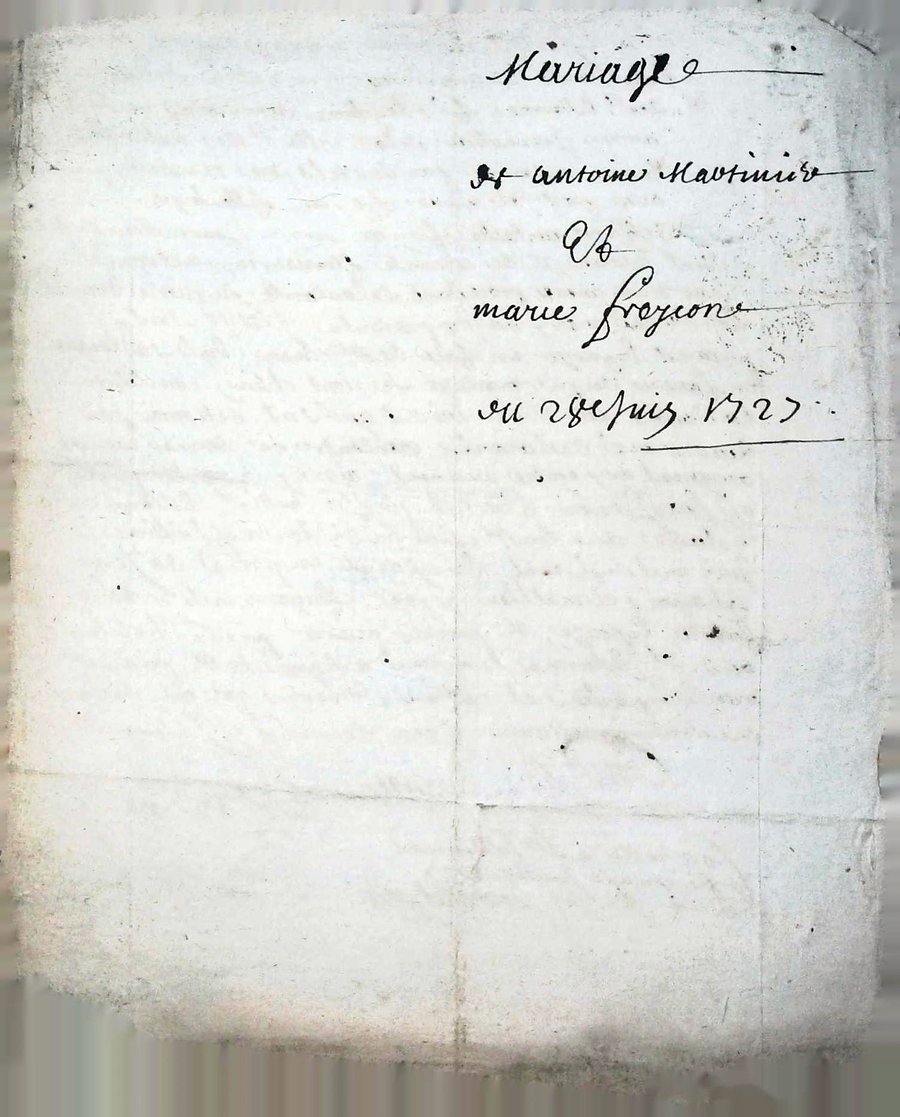 Mariage
de antoine Martinier
Et
marie freycon
du 28e Juin 1727